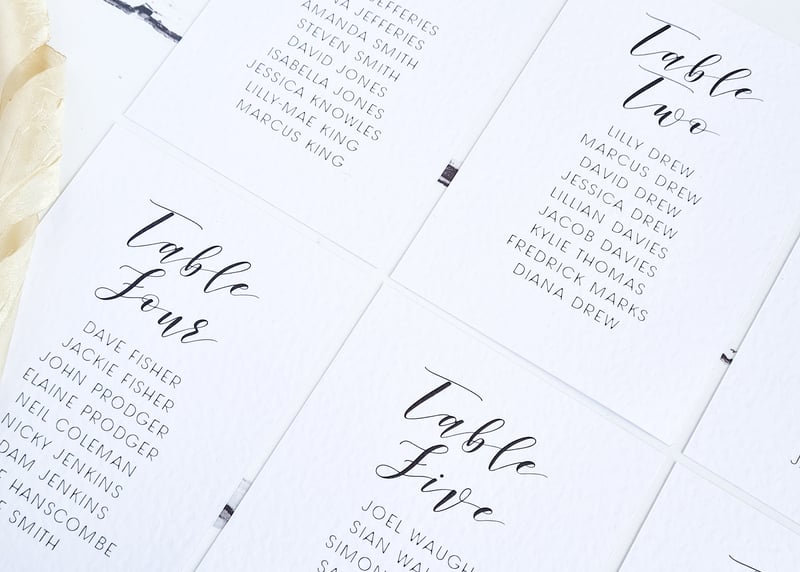 JEFFERIES
JEFFERIES
AMANDA SMITH
STEVEN SMITH
DAVID JONES
ISABELLA JONES
JESSICA KNOWLES
LILLY-MAE KING
MARCUS KING
Table
Two
LILLY DREW
MARCUS DREW
DAVID DREW
JESSICA DREW
LILLIAN DAVIES
JACOB DAVIES
KYLIE THOMAS
FREDRICK MARKS
DIANA DREW
Table
Four
DAVE FISHER
JACKIE FISHER
JOHN PRODGER
ELAINE PRODGER
NEIL COLEMAN
NICKY JENKINS
DAM JENKINS
E HANSCOMBE
E SMITH
Table
Five
JOEL WAUGH
SIAN WAU
SIMON